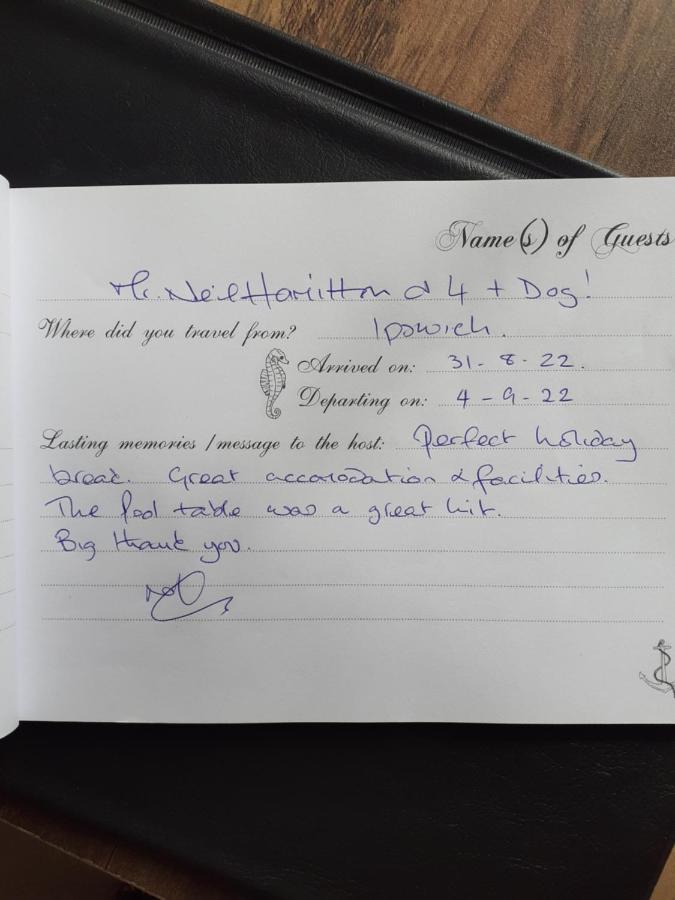 Name(s) of Guests
Mr. Neil Hamilton & 4 + Dog!
Where did you travel from? Ipswich.
Arrived on: 31-8-22.
Departing on: 4-9-22
Lasting memories / message to the host: Perfect holiday
break. Great accomodation & facilities.
The Pool table was a great hit.
Big thank you.